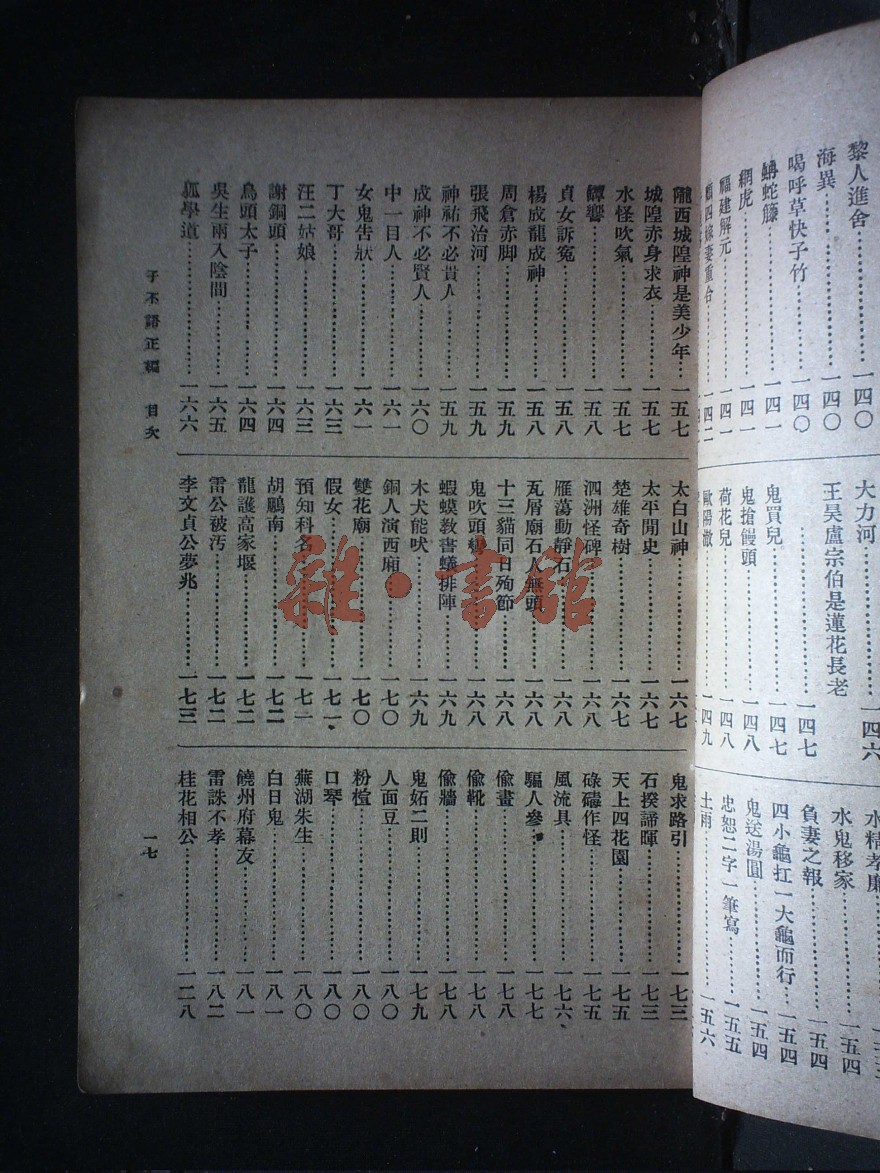 黎人進舍……一四〇
海異……一四〇
喝呼草快子竹……一四〇
蚺蛇籐……一四一
網虎……一四一
福建解元……一四一
大力河……一四六
王昊盧宗伯是蓮花長老……一四七
鬼買兒……一四七
鬼搶饅頭……一四八
荷花兒……一四八
歐陽澈……一四九
水精孝廉
水鬼移家……一五四
負妻之報……一五四
四小龜扛一大龜而行……一五四
鬼送湯圓……一五四
忠恕二字一筆寫……一五五
土雨……一五六
隴西城隍神是美少年……一五七
城隍赤身求衣……一五七
水怪吹氣……一五七
鐔響……一五八
貞女訴冤……一五八
楊成龍成神……一五八
周倉赤脚……一五九
張飛治河……一五九
神祐不必貴人……一五九
成神不必賢人……一六〇
中一目人……一六一
女鬼告狀……一六一
丁大哥……一六三
汪二姑娘……一六三
謝銅頭……一六四
鳥頭太子……一六四
吳生兩入陰間……一六五
狐學道……一六六
太白山神……一六七
太平閒史……一六七
楚雄奇樹……一六七
泗洲怪碑……一六八
雁蕩動靜石……一六八
瓦屑廟石人無頭……一六八
十三貓同日殉節……一六八
鬼吹頭彎……一六八
蝦蟆敎書蟻排陣……一六九
木犬能吠……一六九
銅人演西廂……一七〇
雙花廟……一七〇
假女……一七一
預知科名……一七一
胡鵬南……一七二
龍護高家堰……一七二
雷公被汚……一七二
李文貞公夢兆……一七三
鬼求路引……一七三
石揆諦暉……一七三
天上四花園……一七五
碌碡作怪……一七五
風流具……一七六
驅人參……一七七
偸畫……一七八
偸靴……一七八
偸牆……一七八
鬼妬二則……一七九
人面豆……一八〇
粉楦……一八〇
口琴……一八〇
蕪湖朱生……一八〇
白日鬼……一八一
饒州府幕友……一八一
雷誅不孝……一八二
桂花相公……一二八
子不語正編　目次
一七
雜·書館